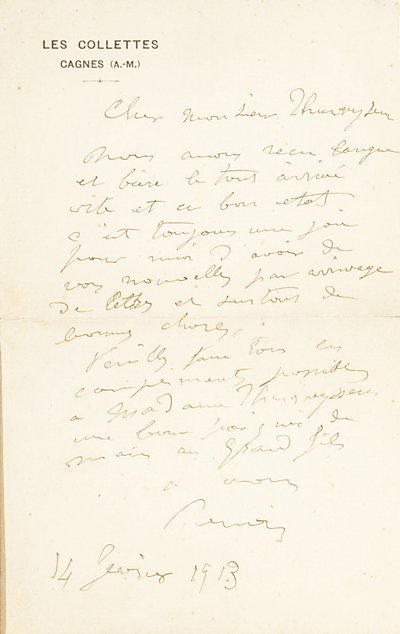 LES COLLETTES
CAGNES (A.-M.)
Cher Monsieur Thurneyssen
Nous avons reçu langue
et bière le tout arrivé
vite et en bon etat
c'est toujours une joie
pour moi d'avoir de
vos nouvelles par arrivage
de lettres et surtout de
bonnes choses,
Veuillez faire tous les
compliments possibles
a Madame Thurneyssen
une bonne poignée de
main au grand fils
a vous
Renoir
14 février 1913